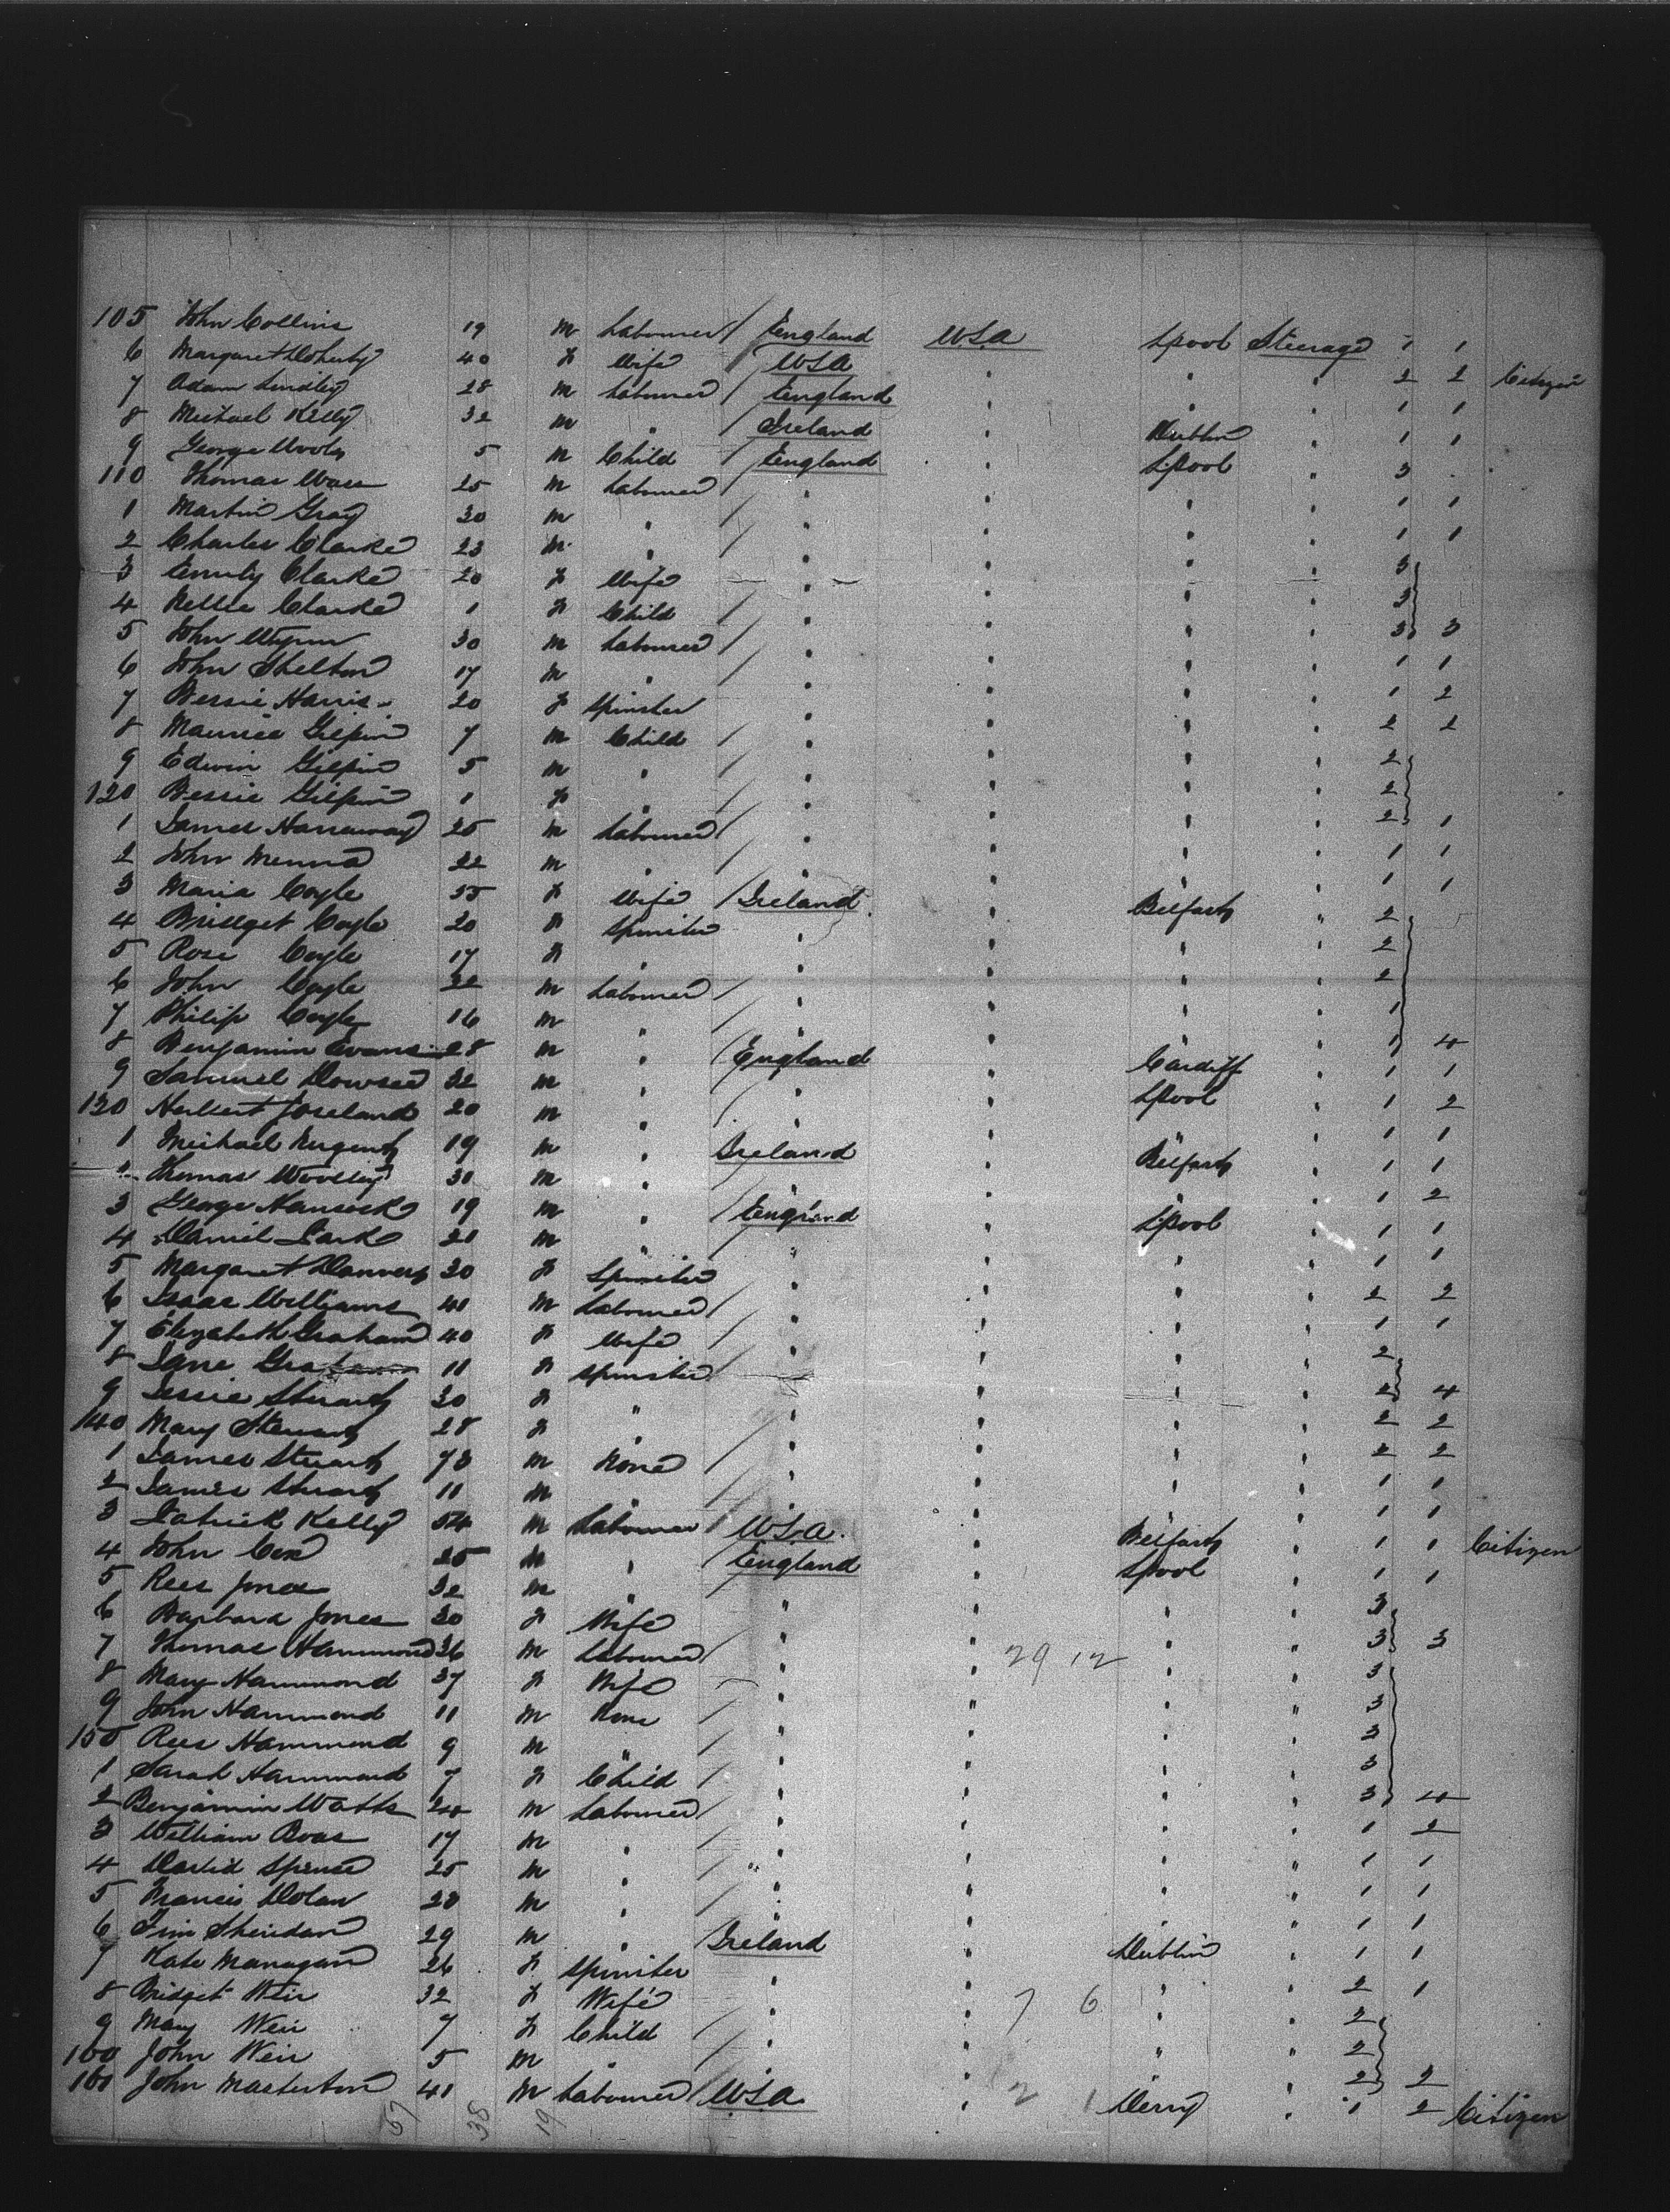 105 John Collins 19 m Labourer England USA Lpool Steerage 1 1
6 Margaret Doherty 40 f Wife USA " " " 2 2 Citizen
7 Adam Lindley 28 m Labourer England " " " 1 1
8 Michael Kelly 32 m " Ireland " Dublin " 1 1
9 George 5 m Child England " Lpool " 3
110 Thomas 25 m Labourer " " " " 1 1
1 Martin Gray 30 m " " " " " 1 1
2 Charles Clarke 23 m " " " " " 3
3 Emily Clarke 20 f Wife " " " " 3
4 Nellie Clarke 1 f Child " " " " 3 3
5 John 30 m Labourer " " " " 1 1
6 John Shelton 17 m " " " " " 1 2
7 Bessie Harris 20 f Spinster " " " " 2 2
8 Maurice Gilpin 7 m Child " " " " 2
9 Edwin Gilpin 5 m " " " " " 2
120 Bessie Gilpin 1 f " " " " " 2 1
1 James Hannaway 25 m Labourer " " " " 1 1
2 John 22 m " " " " " 1 1
3 Maria Coyle 55 f Wife Ireland " Belfast " 2
4 Bridget Coyle 20 f Spinster " " " " 2
5 Rose Coyle 17 f " " " " " 2
6 John Coyle 22 m Labourer " " " " 1
7 Philip Coyle 16 m " " " " " 1 4
8 Benjamin Evans 28 m " England " Cardiff " 1 1
9 Samuel 32 m " " " Lpool " 1 2
130 Herbert Joseland 20 m " " " " " 1 1
1 Michael Nugent 19 m " Ireland " Belfast " 1 1
Thomas Woolley 30 m " " " " " 1 2
3 George Hancock 19 m " England " Lpool " 1 1
4 Daniel 21 m " " " " " 1 1
5 Margaret Danvers 30 f Spinster " " " " 2 2
6 Isaac Williams 41 m Labourer " " " " 1 1
7 Elizabeth Graham 40 f Wife " " " " 2
8 Jane Graham 11 f Spinster " " " " 2 4
9 Jessie Stuart 30 f " " " " " 2 2
140 Mary Stewart 28 f " " " " " 2 2
1 James Stuart 73 m None " " " " 1 1
2 James Stuart 11 m " " " " " 1 1
3 Patrick Kelly 54 m Labourer USA. " Belfast " 1 1 Citizen
4 John Cox 25 m " England " Lpool " 1 1
5 Rees Jones 32 m " " " " " 3
6 Barbara Jones 30 f Wife " " " " 3 3
7 Thomas Hammond 36 m Labourer " 29 12 " " 3
8 Mary Hammond 37 f Wife " " " " 3
9 John Hammond 11 m None " " " " 3
150 Rees Hammond 9 m " " " " " 3
1 Sarah Hammond 7 f Child " " " " 3 4
2 Benjamin Watts 24 m Labourer " " " " 1 2
3 William Boas 17 m " " " " " 1 1
4 David Spence 25 m " " " " " 1 1
5 Francis Dolan 28 m " " " " " 1 1
6 Tim Sheridan 29 m " Ireland " Dublin " 1 1
7 Kate Managan 26 f Spinster " " " " 2 1
8 Bridget Weir 32 f Wife " 7 6 " " 2
9 Mary Weir 7 f Child " " " " 2
160 John Weir 5 m " " " " " 2 2
161 John Masterton 41 m Labourer USA " 2 1 Derry " 1 2 Citizen
57 38 19